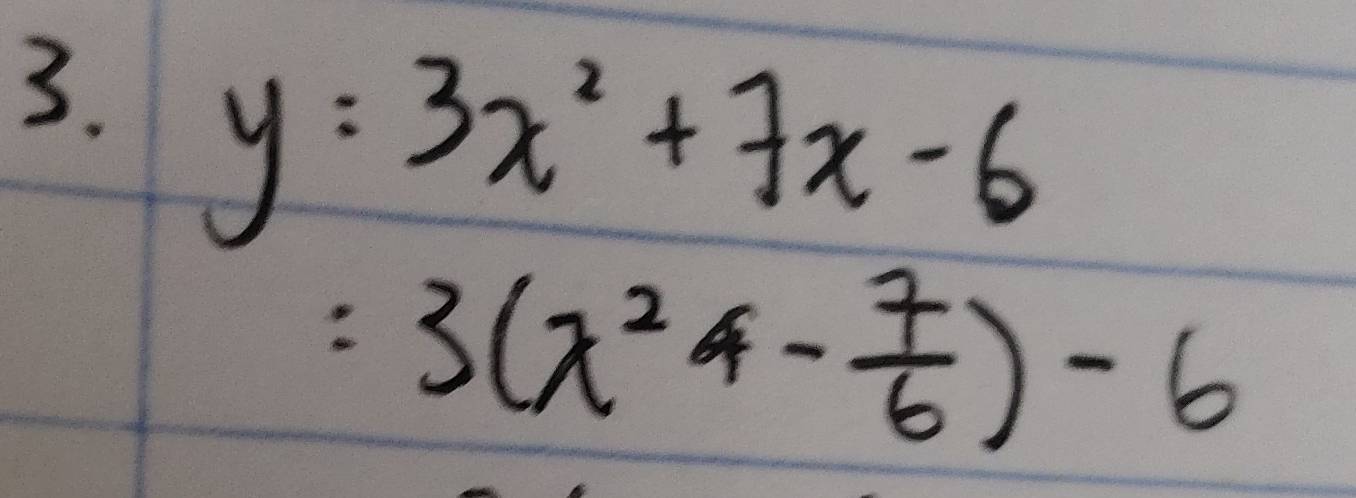 3. y = 3x² + 7x - 6
= 3(x² - 7/6) - 6